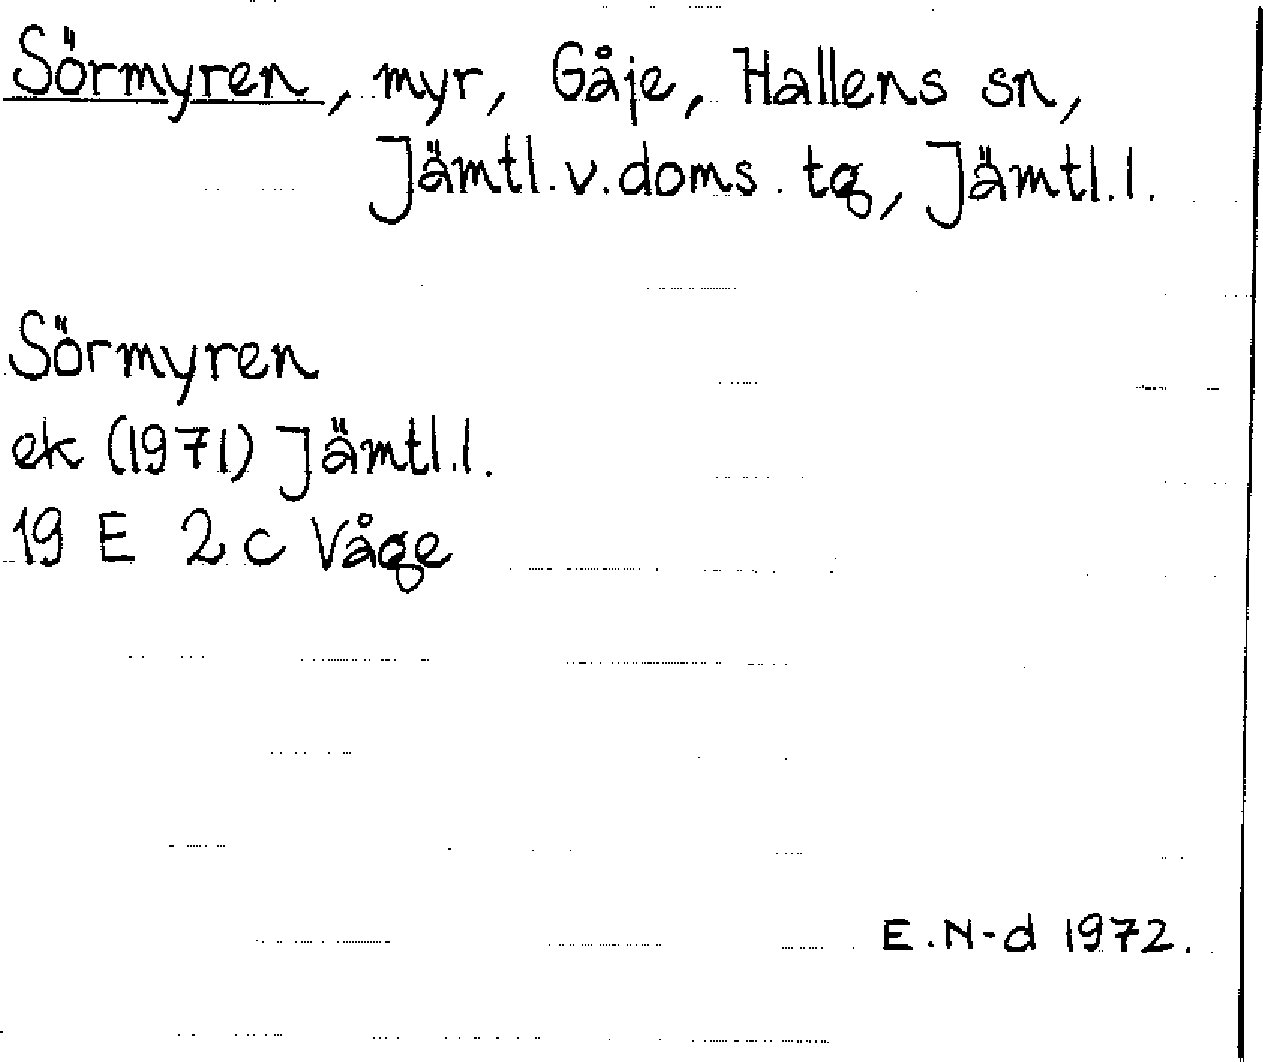 Sörmyren, myr, Gåje, Hallens sn,
Jämtl.v.doms. tg, Jämtl.l.
Sörmyren
ek (1971) Jämtl.l.
19 E 2c Våge
E.N-d 1972.